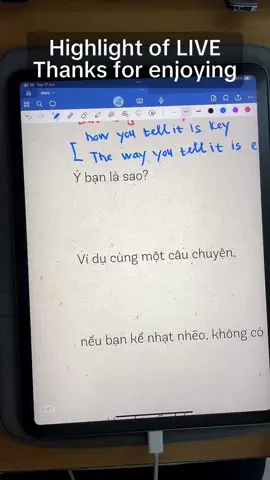 Highlight of LIVE
Thanks for enjoying
how you tell it is key
The way you tell it is e
Ý bạn là sao?
Ví dụ cùng một câu chuyện,
nếu bạn kể nhạt nhẽo, không có